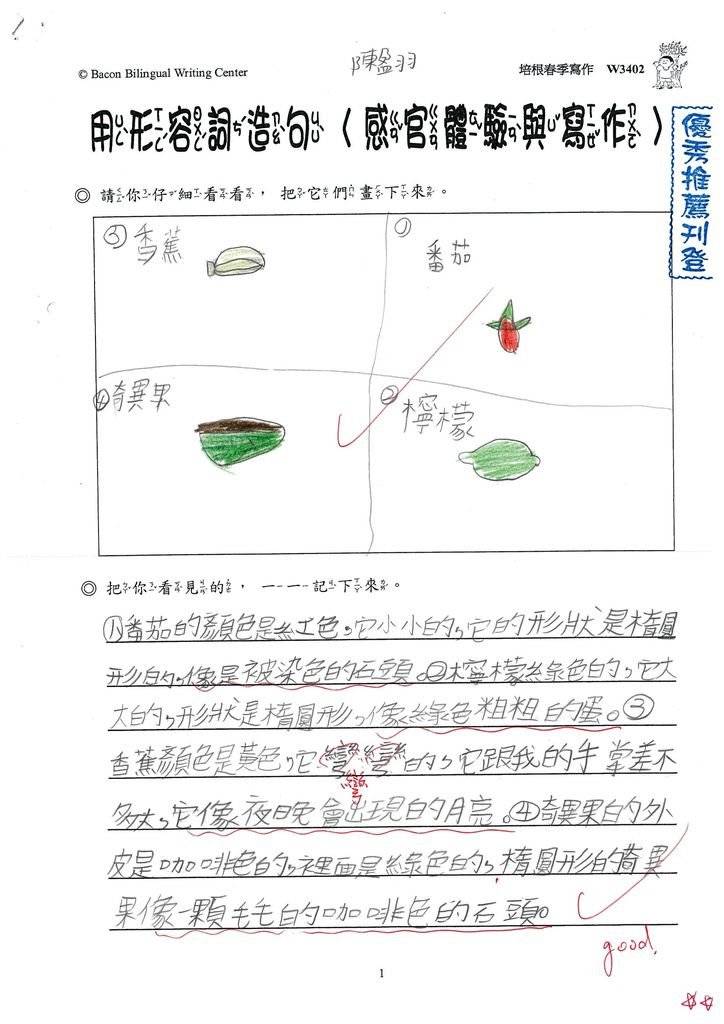 © Bacon Bilingual Writing Center
陳盈羽
培根春季寫作 W3402
用形容詞造句〈感官體驗與寫作〉
優秀推薦刊登
◎ 請你仔細看看看，把它們畫下來。
③ 香蕉
① 番茄
④ 奇異果
② 檸檬
◎ 把你看見的，一一記下來。
①番茄的顏色是紅色，它小小的，它的形狀是橢圓
形的，像是被染色的石頭。②檸檬綠色的，它大
大的，形狀是橢圓形，像綠色粗粗的蛋。③
香蕉顏色是黃色，它彎彎的，它跟我的手掌差不
彎
多大，它像夜晚會出現的月亮。④奇異果的外
皮是咖啡色的，裡面是綠色的，橢圓形的奇異
果像一顆毛毛的咖啡色的石頭。
good!
1